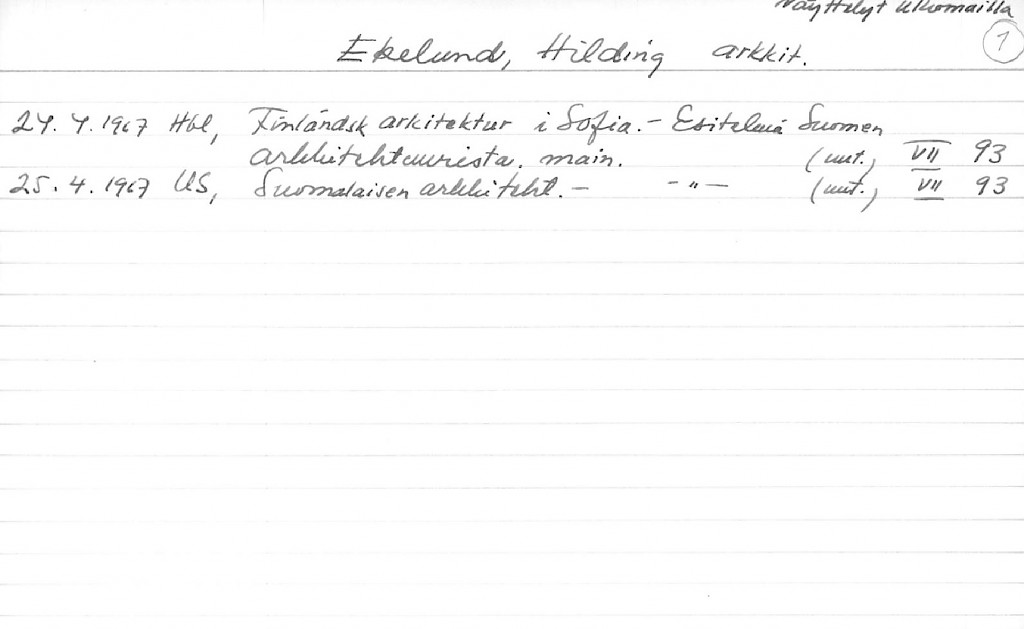 Näyttelyt ulkomailla
1
Ekelund, Hilding arkkit.
24. 4. 1967 Hbl, Finländsk arkitektur i Sofia. - Esitelmä Suomen
arkkitehtuurista. main. (uut.) VII 93
25. 4. 1967 US, Suomalaisen arkkiteht. - - " - (uut.) VII 93